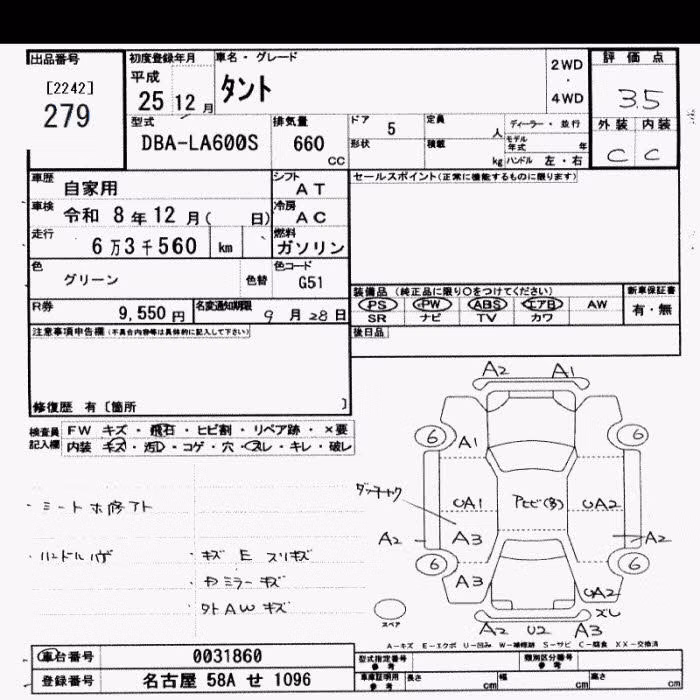 出品番号
[2242]
279
初度登録年月
平成
25 12 月
車名・グレード
タント
2WD
・
4WD
評価点
3.5
外装 内装
C C
型式
DBA-LA600S
排気量
660
CC
ドア 5
形状
定員 人
積載 kg
ディーラー・並行
モデル年式 年
ハンドル 左・右
車歴
自家用
シフト
AT
車検
令和 8年12月( 日)
冷房
AC
走行
6万3千560 km
燃料
ガソリン
色
グリーン
色替
色コード
G51
R券
9,550円
名変通知期限
9月28日
セールスポイント(正常に機能するものに限ります)
装備品 (純正品に限り〇をつけてください)
PS PW ABS エアB AW
SR ナビ TV カワ
新車保証書
有・無
後日品
注意事項申告欄(不具合内容等は具体的に記入して下さい)
修復歴 有〔箇所 〕
検査員
記入欄
FW キズ・飛石・ヒビ割・リペア跡・×要
内装 キズ・汚レ・コゲ・穴・スレ・キレ・破レ
・シートホ修アト
・ハンドルハゲ
・キズ E スリキズ
・ミラーキズ
・タトAWキズ
A2 A1
6 A1 6
ダッチャク
UA1 Pヒビ(多) UA2
A2 A3 A2
6 A3 6
UA2
ズレ
A2 U2 A3
スペア
A-キズ E-エクボ U-凹み W-補修跡 S-サビ C-腐食 XX-交換済
車台番号
0031860
登録番号
名古屋 58A せ 1096
型式指定番号
参考
類別区分番号
参考
車庫証明用
参考
長さ cm
幅 cm
高さ cm